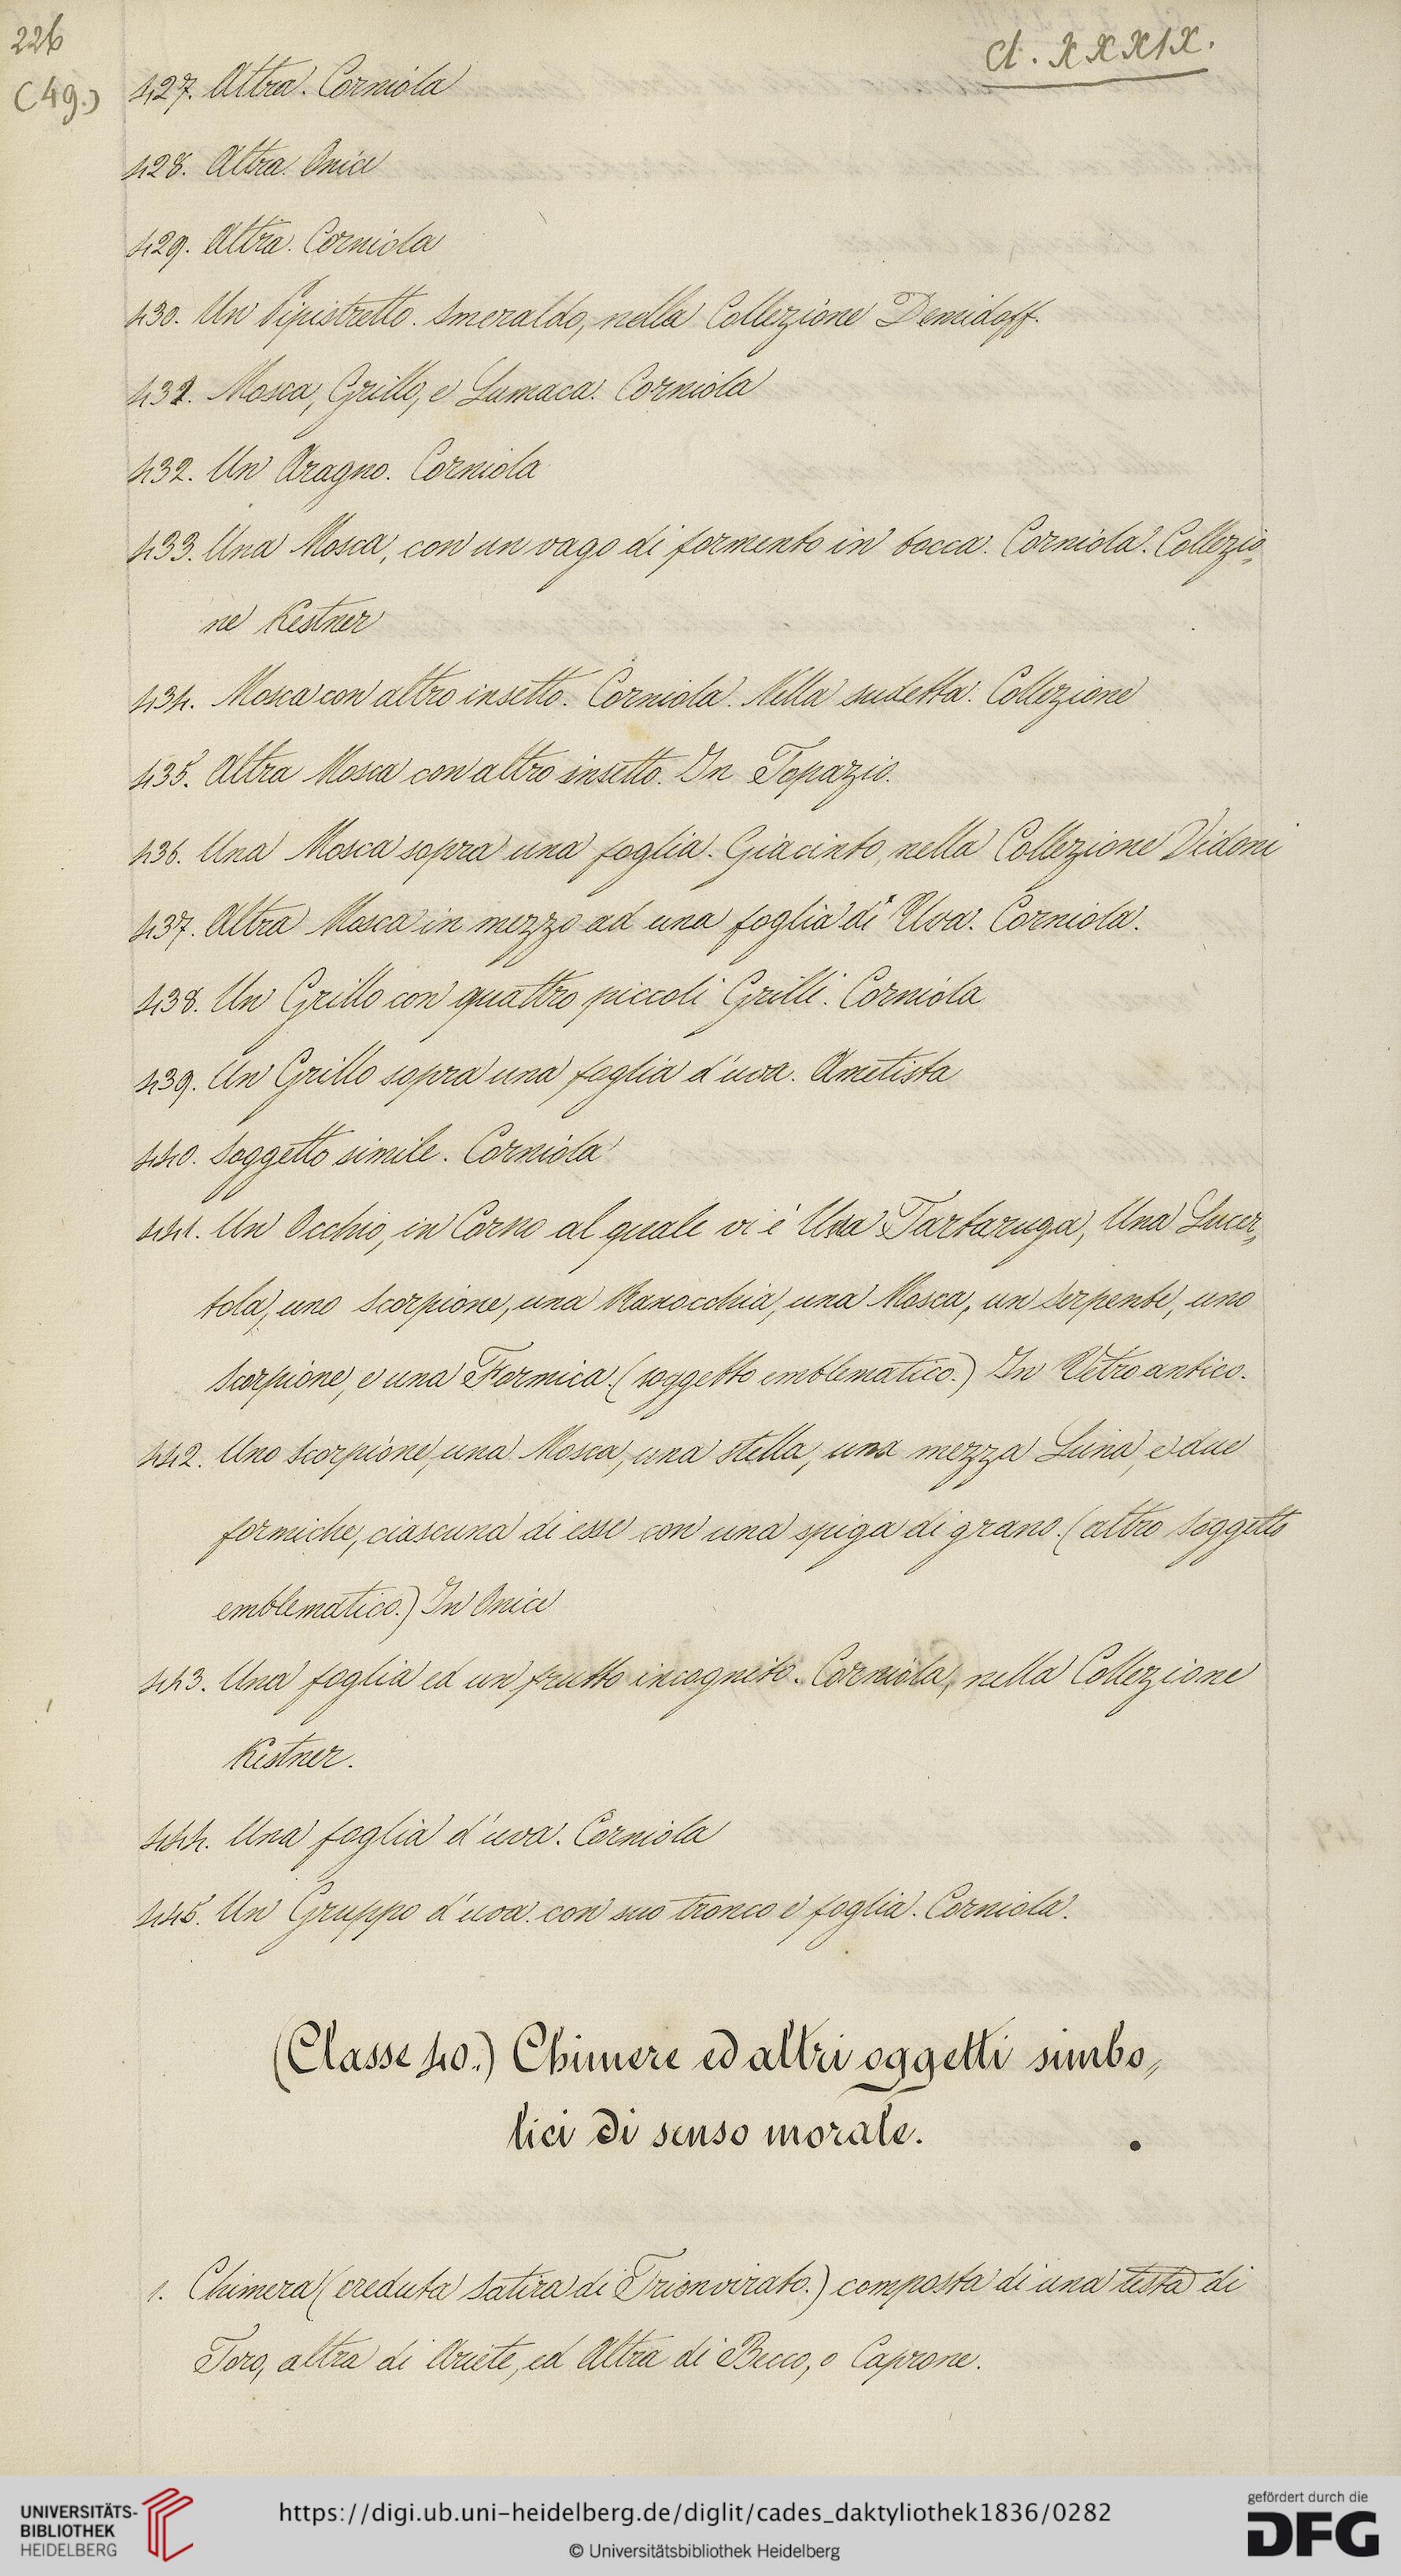 226
Cl. XXXIX.
(49.)
427. Altra. Corniola
428. Altra. Onice
429. Altra. Corniola
430. Un Pipistrello. Smeraldo, nella Collezione Demidoff.
431. Mosca, Grillo, e Lumaca. Corniola
432. Un Aragno. Corniola
433. Una Mosca, con un vago di formento in bocca. Corniola. Collezio„
ne Kestner
434. Mosca con altro insetto. Corniola. Nella sudetta Collezione
435. Altra Mosca con altro insetto. In Topazio.
436. Una Mosca sopra una foglia. Giacinto, nella Collezione Vidoni
437. Altra Mosca in mezzo ad una foglia di Uva. Corniola.
438. Un Grillo con quattro piccoli Grilli. Corniola
439. Un Grillo sopra una foglia d'uva. Ametista
440. Soggetto simile. Corniola
441. Un Occhio, in Corno al quale vi è Una Tartaruga, Una Lucer„
tola, uno Scorpione, una Ranocchia, una Mosca, un Serpente, uno
Scorpione, e una Formica. (soggetto emblematico.) In Vetro antico.
442. Uno Scorpione, una Mosca, una stella, una mezza Luna, e due
formiche, ciascuna di esse con una spiga di grano. (altro Soggetto
emblematico.) In Onice
443. Una foglia ed un frutto incognito. Corniola, nella Collezione
Kestner.
444. Una foglia d'uva. Corniola
445. Un Gruppo d'uva con suo tronco e foglia. Corniola.
(Classe 40.) Chimere ed altri oggetti simbo„
lici di senso morale.
1. Chimera (creduta Satira di Trionvirato.) composta di una testa di
Toro, altra di Ariete, ed Altra di Becco, o Caprone.
UNIVERSITÄTS-
BIBLIOTHEK
HEIDELBERG
https://digi.ub.uni-heidelberg.de/diglit/cades_daktyliothek1836/0282
© Universitätsbibliothek Heidelberg
gefördert durch die
DFG